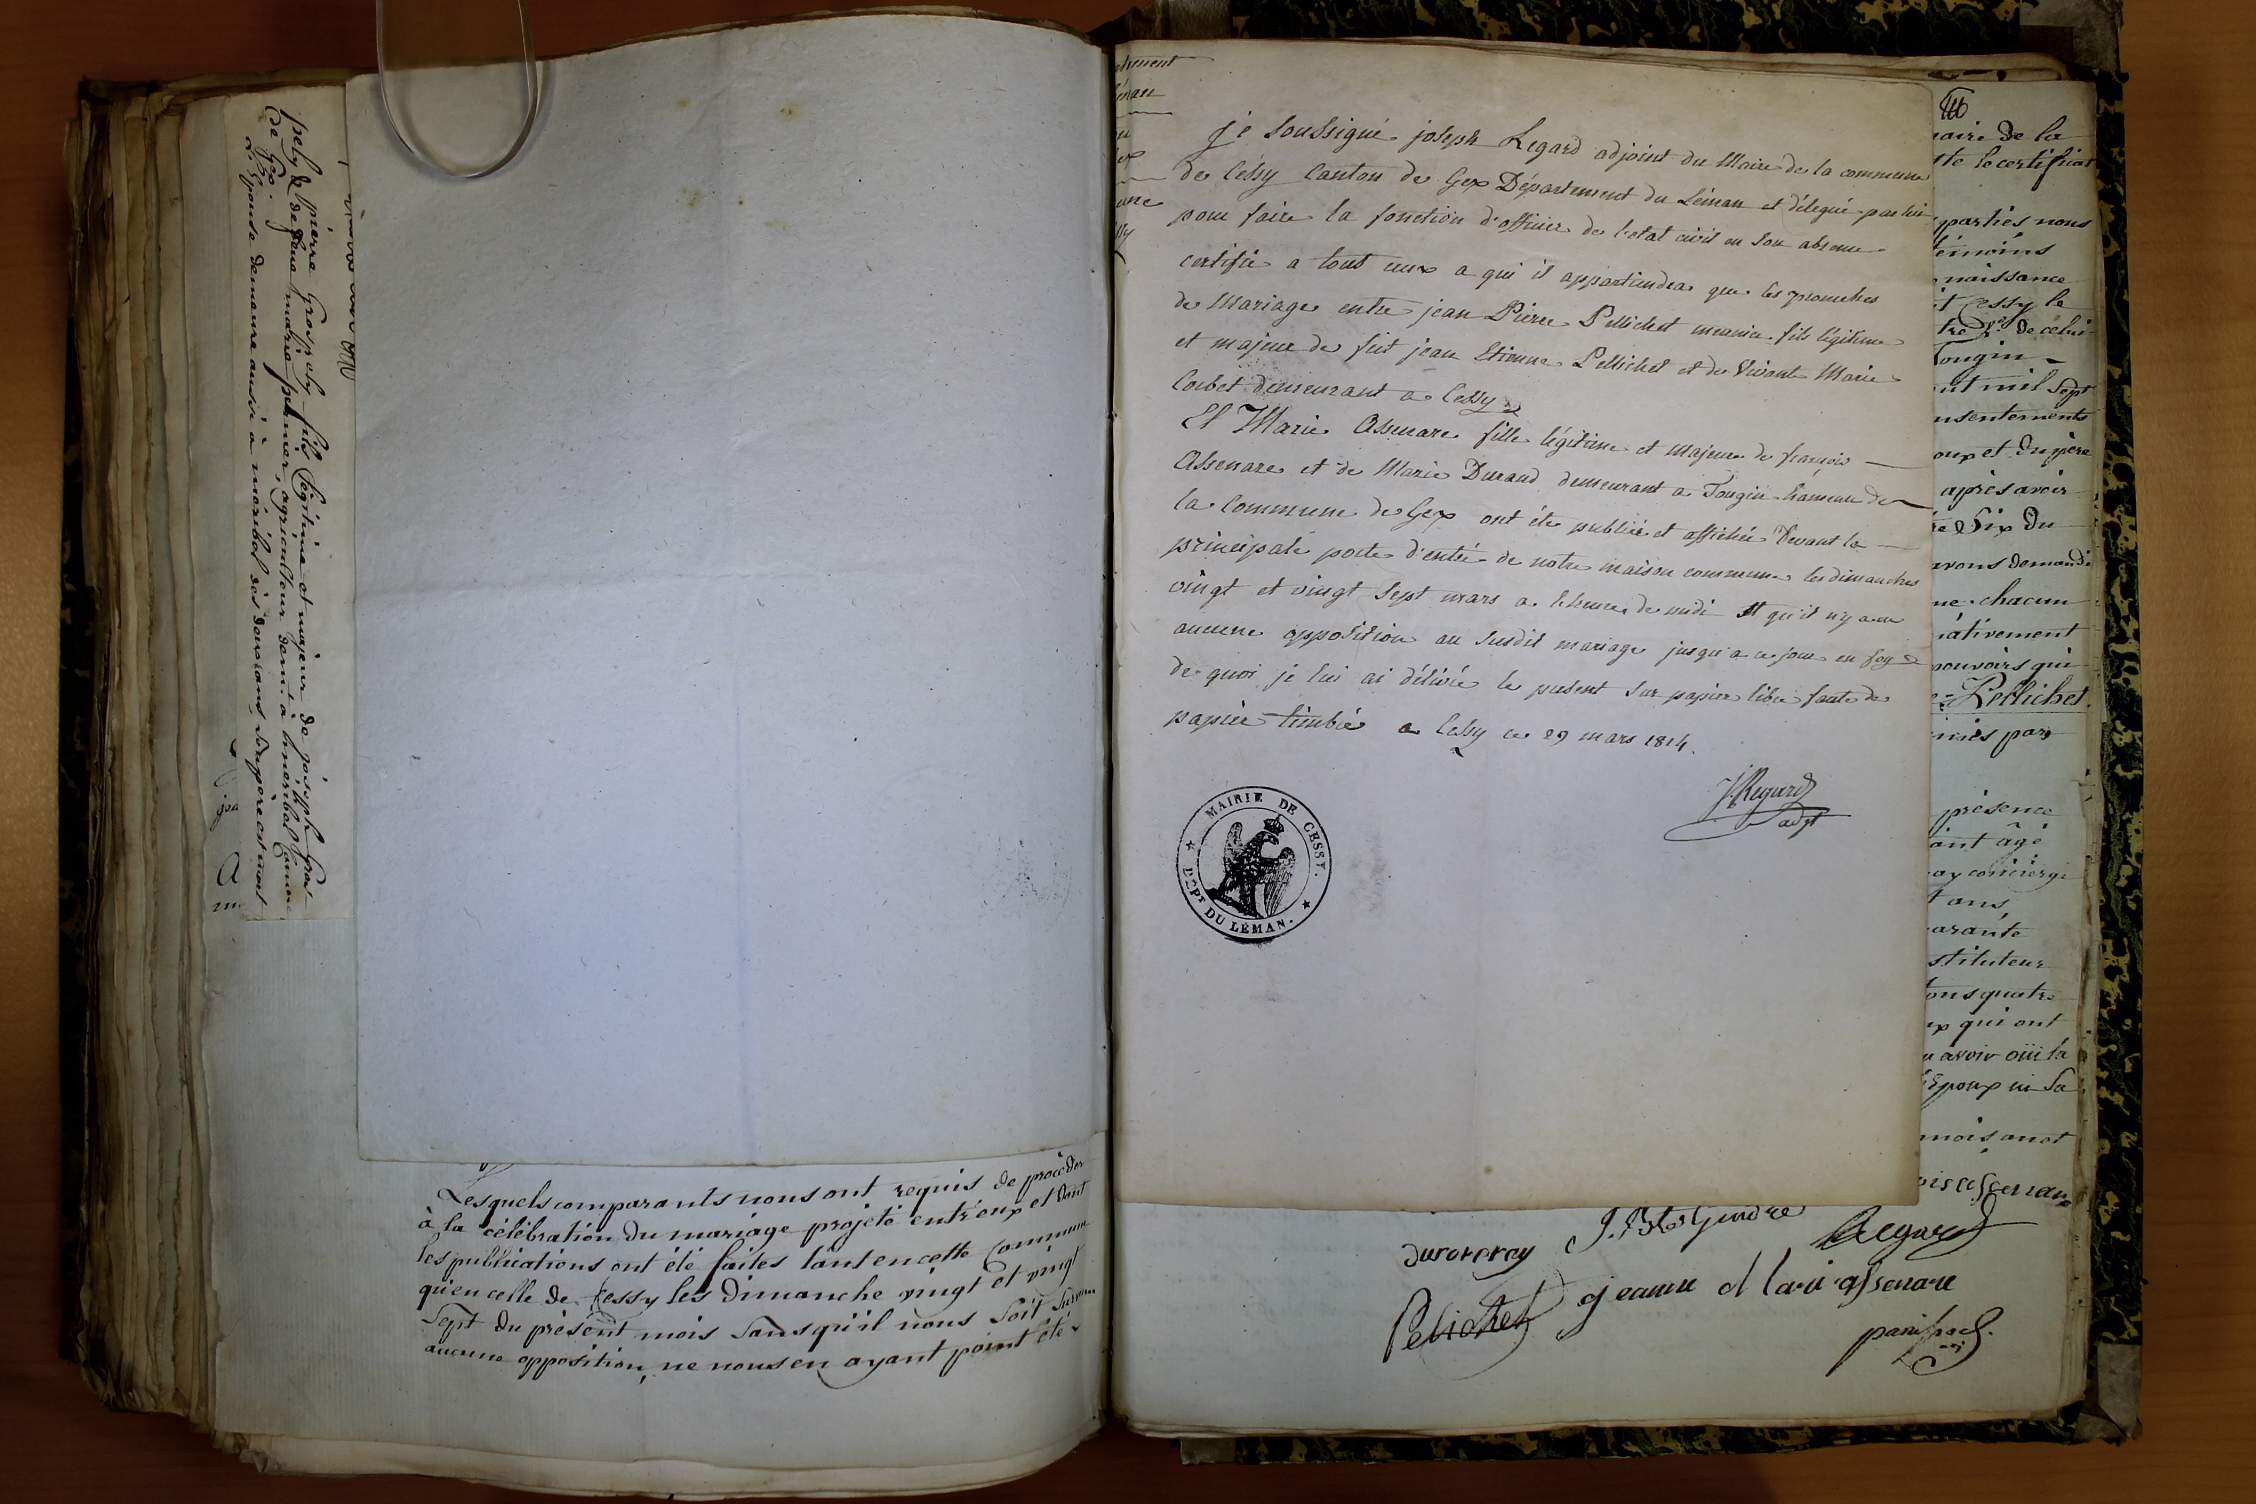 pely & pierre Grospely fils légitime et majeur de joseph Gros
& de jane maria pernier, agriculteur demt. à
de Gex.
L'Epouse demeure aussi à méribel dès deux ans, son père est mort
Lesquels comparants nous ont requis de procéder
à la célébration du mariage projeté entr'eux et dont
les publications ont été faites tant en cette Commune
qu'en celle de Cessy les Dimanche vingt et vingt
Sept du présent mois Sans qu'il nous Soit
aucune opposition, ne nous en ayant point été
je soussigné joseph Regard adjoint du Maire de la commune
de Céssy Canton de Gex Département du Léman et délégué par lui
pour faire la fonction d'officier de l'etat civil en son absence
certifie a tous ceux a qui il appartiendra que les promesses
de Mariage entre jean Pierre Pellichet meunier fils légitime
et majeur de feit jean Etienne Pellichet et de Vivante Marie
Corbet demeurant a Cessy
Et Marie Assenare fille légitime et Majeure de françois
Assenare et de Marie Durand demeurant a Tougin hameau de
la Commune de Gex ont été publiée et affichée Devant la
principale porte d'entrée de notre maison commune les dimanches
vingt et vingt sept mars a l'heure de midi Et qu'il n'y a eu
aucune opposition au susdit mariage jusqu'a ce jour en foy
de quoi je lui ai délivré le present sur papier libre faute de
papier timbré a Cessy ce 29 mars 1814.
J. Regard
adjt
MAIRIE DE CESSY.
DEPT DU LÉMAN.
naire de la
te le certificat
parties nous
témoins
naissance
et Cessy le
de celui
Tougin
mil Sept
nsentements
oux et du père
après avoir
Six Du
avons demandé
chacun
ativement
pouvoirs qui
Pellichet
par
présence
ant âgé
concierge
t ans,
arante
stituteur
tous quatre
ux qui ont
avoir oüi la
Époux ni Sa
mois an et
Duroveray J. Bte Gindre Regard
Pelichet jeanne Marie assenare